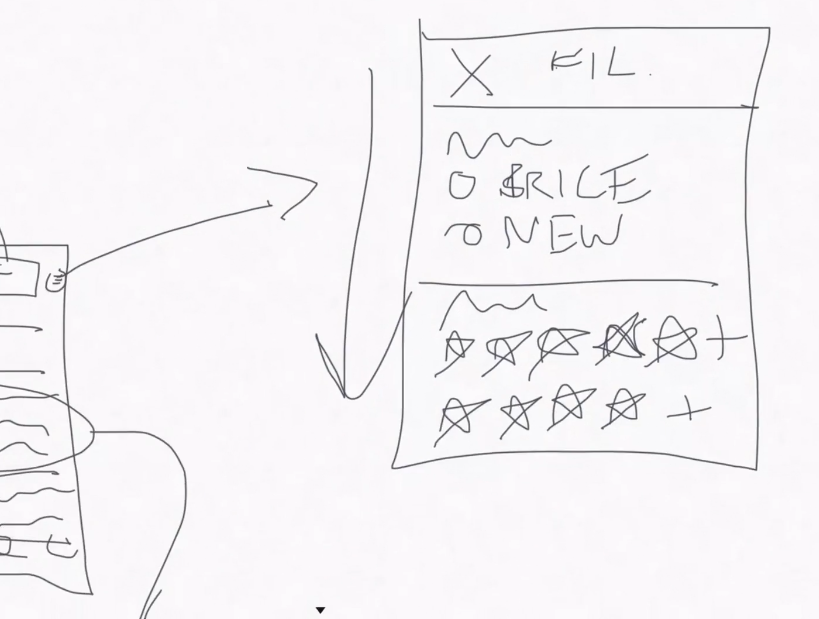 X FIL.
PRICE
NEW
+
+